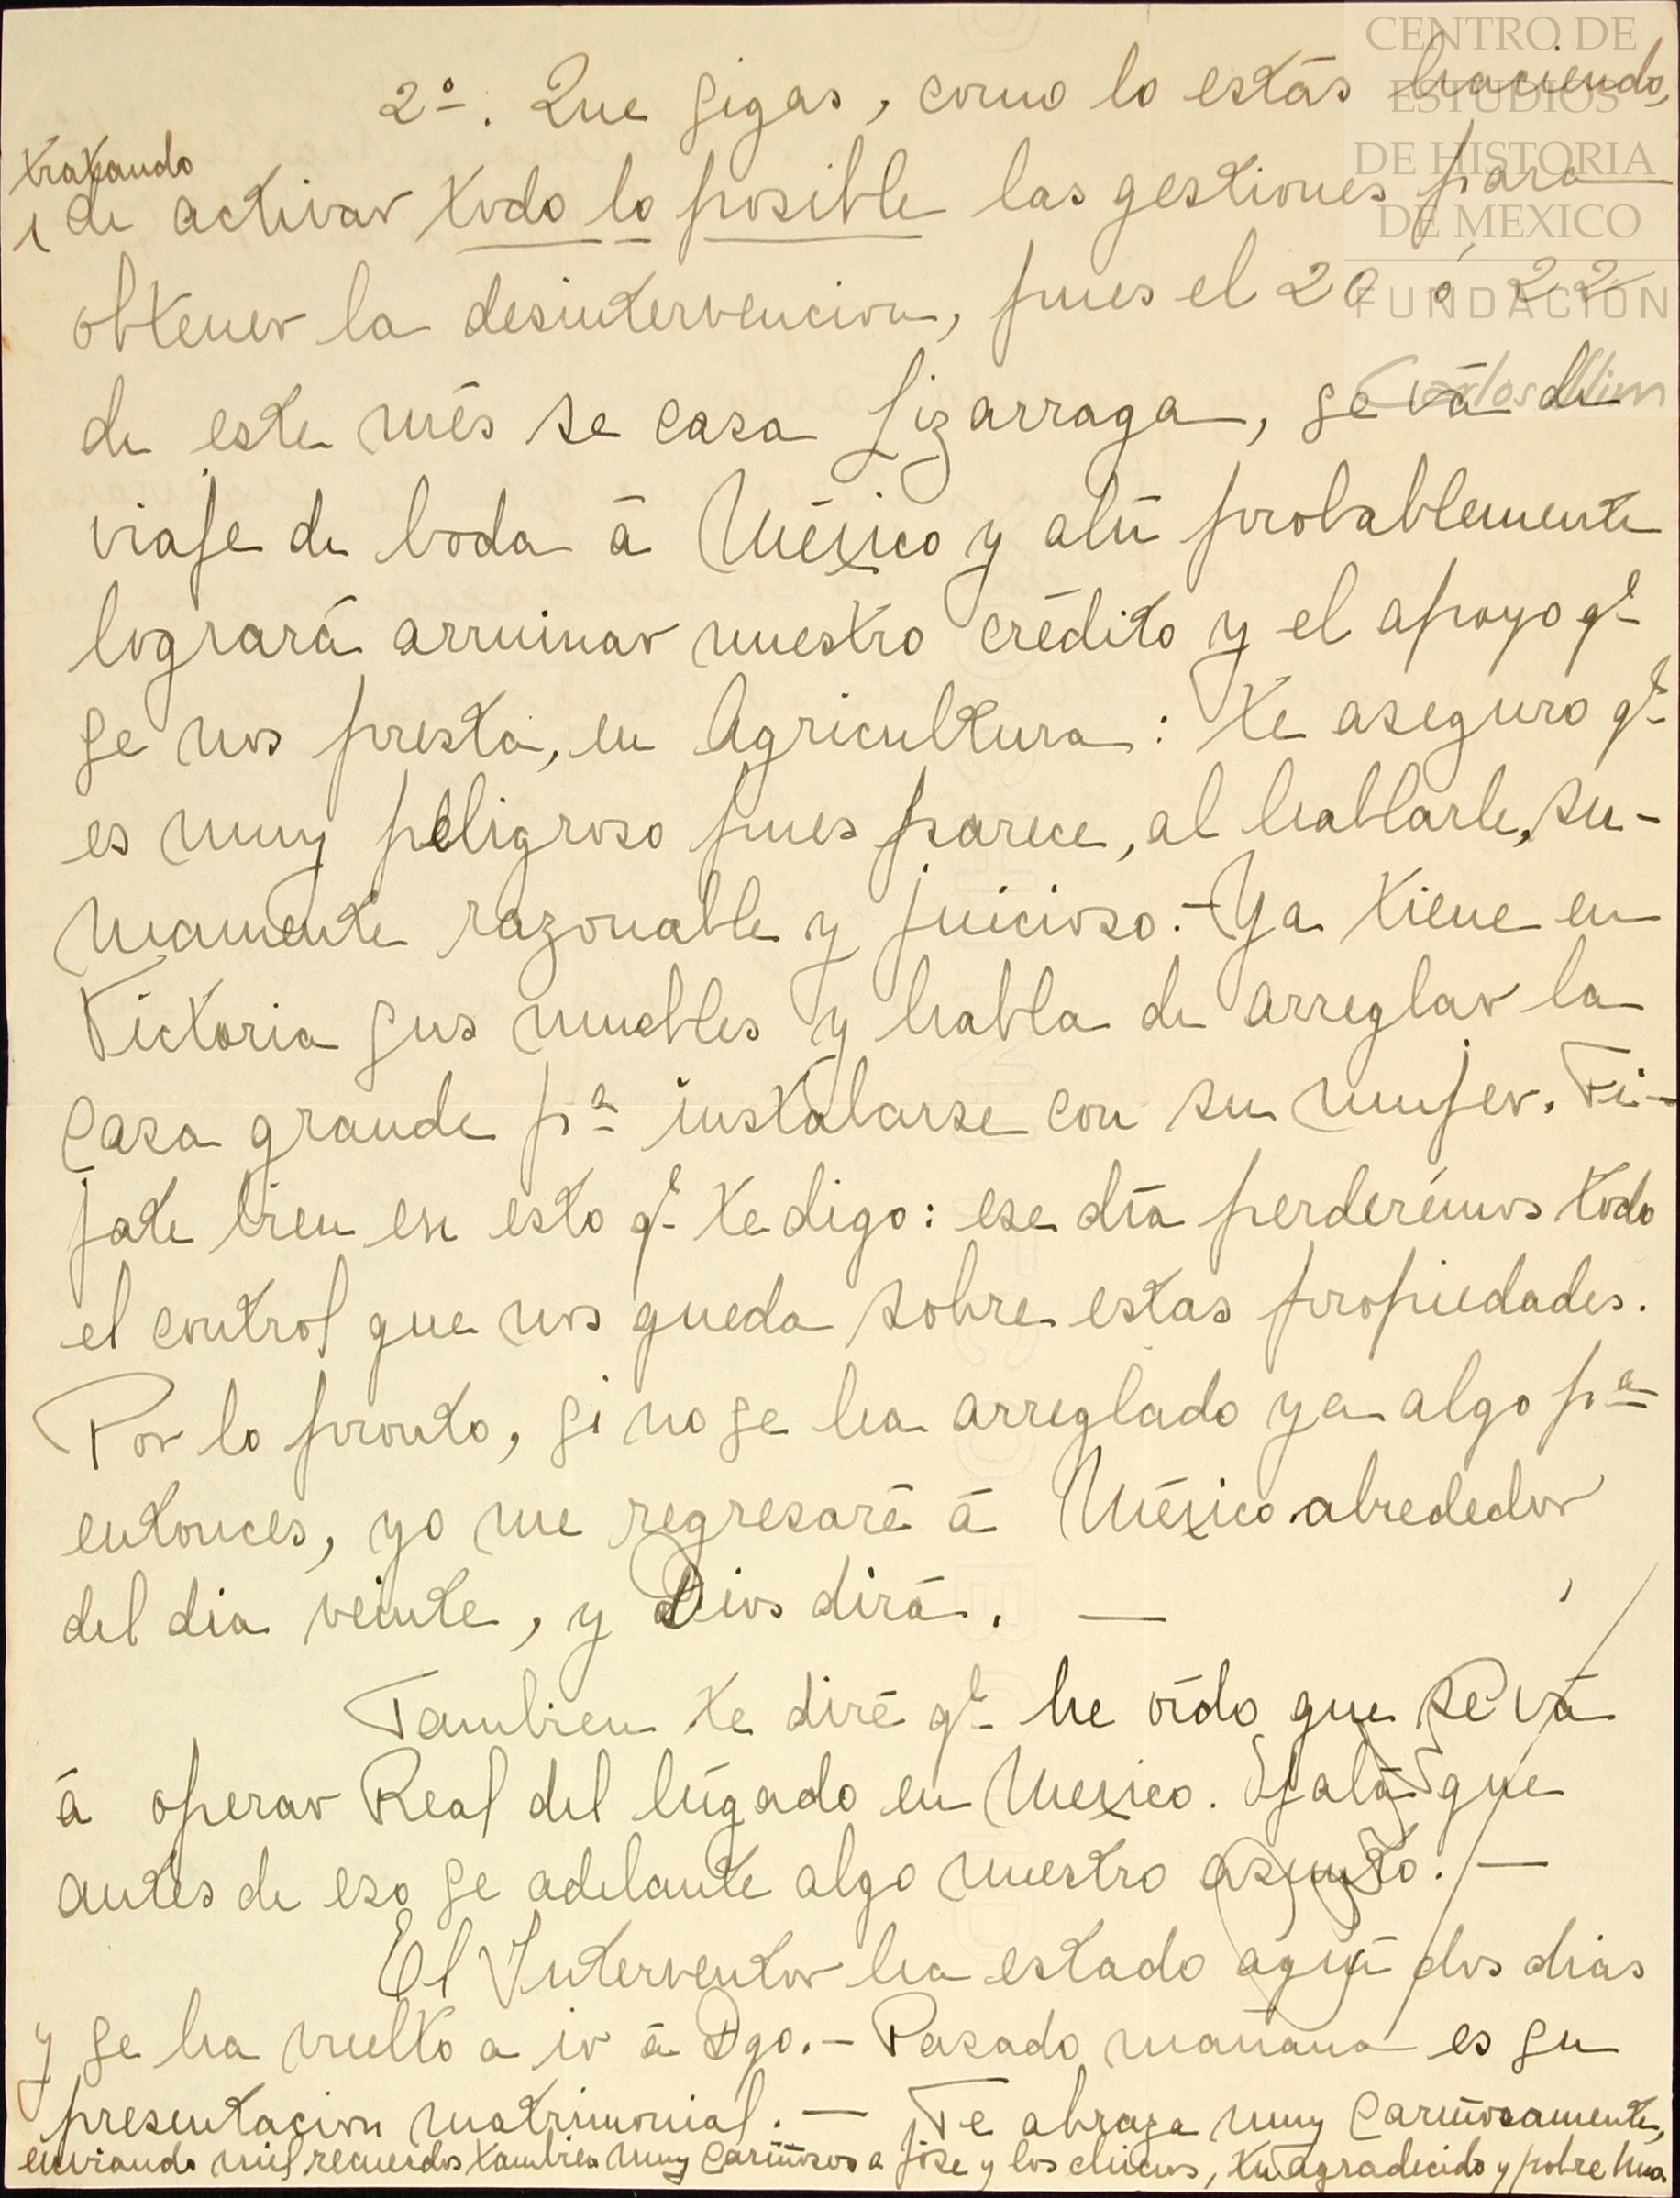 CENTRO DE
ESTUDIOS
DE HISTORIA
DE MEXICO
FUNDACIÓN
Carlos Slim
2º. Que sigas, como lo estás haciendo,
tratando
de activar todo lo posible las gestiones para
obtener la desintervencion, pues el 20 ó 22
de este més se casa Lizarraga, se vá de
viaje de boda á México y ahí probablemente
logrará arruinar nuestro crédito y el apoyo qe
se nos presta, en Agricultura: te aseguro qe
es muy peligroso pues parece, al hablarle, su-
mamente razonable y juicioso.- Ya tiene en
Victoria sus muebles y habla de arreglar la
casa grande pa instalarse con su mujer. Fi-
jate bien en esto qe te digo: ese día perderémos todo
el control que nos queda sobre estas propiedades.
Por lo pronto, si no se ha arreglado ya algo pa
entonces, yo me regresaré á México alrededor
del dia veinte, y Dios dirá. —
Tambien te diré qe he oído que se vá
á operar Real del hígado en Mexico. Ojalá que
antes de eso se adelante algo nuestro asunto. —
El Interventor ha estado aquí dos dias
y se ha vuelto a ir á Dgo.- Pasado mañana es su
presentacion matrimonial. — Te abraza muy cariñosamente,
enviando mil recuerdos tambien muy cariñosos a José y los chicos, tu agradecido y pobre hno.